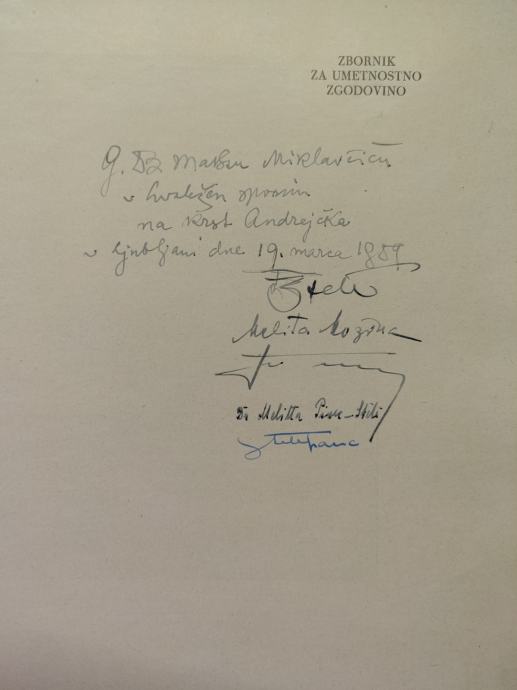 ZBORNIK
ZA UMETNOSTNO
ZGODOVINO
G. Dr Maksu Miklavčiču
v hvaležen spomin
na krst Andrejčka
v Ljubljani dne 19. marca 1959
Stele
Melita Mozina
Dr Melitta Pivec-Stelè